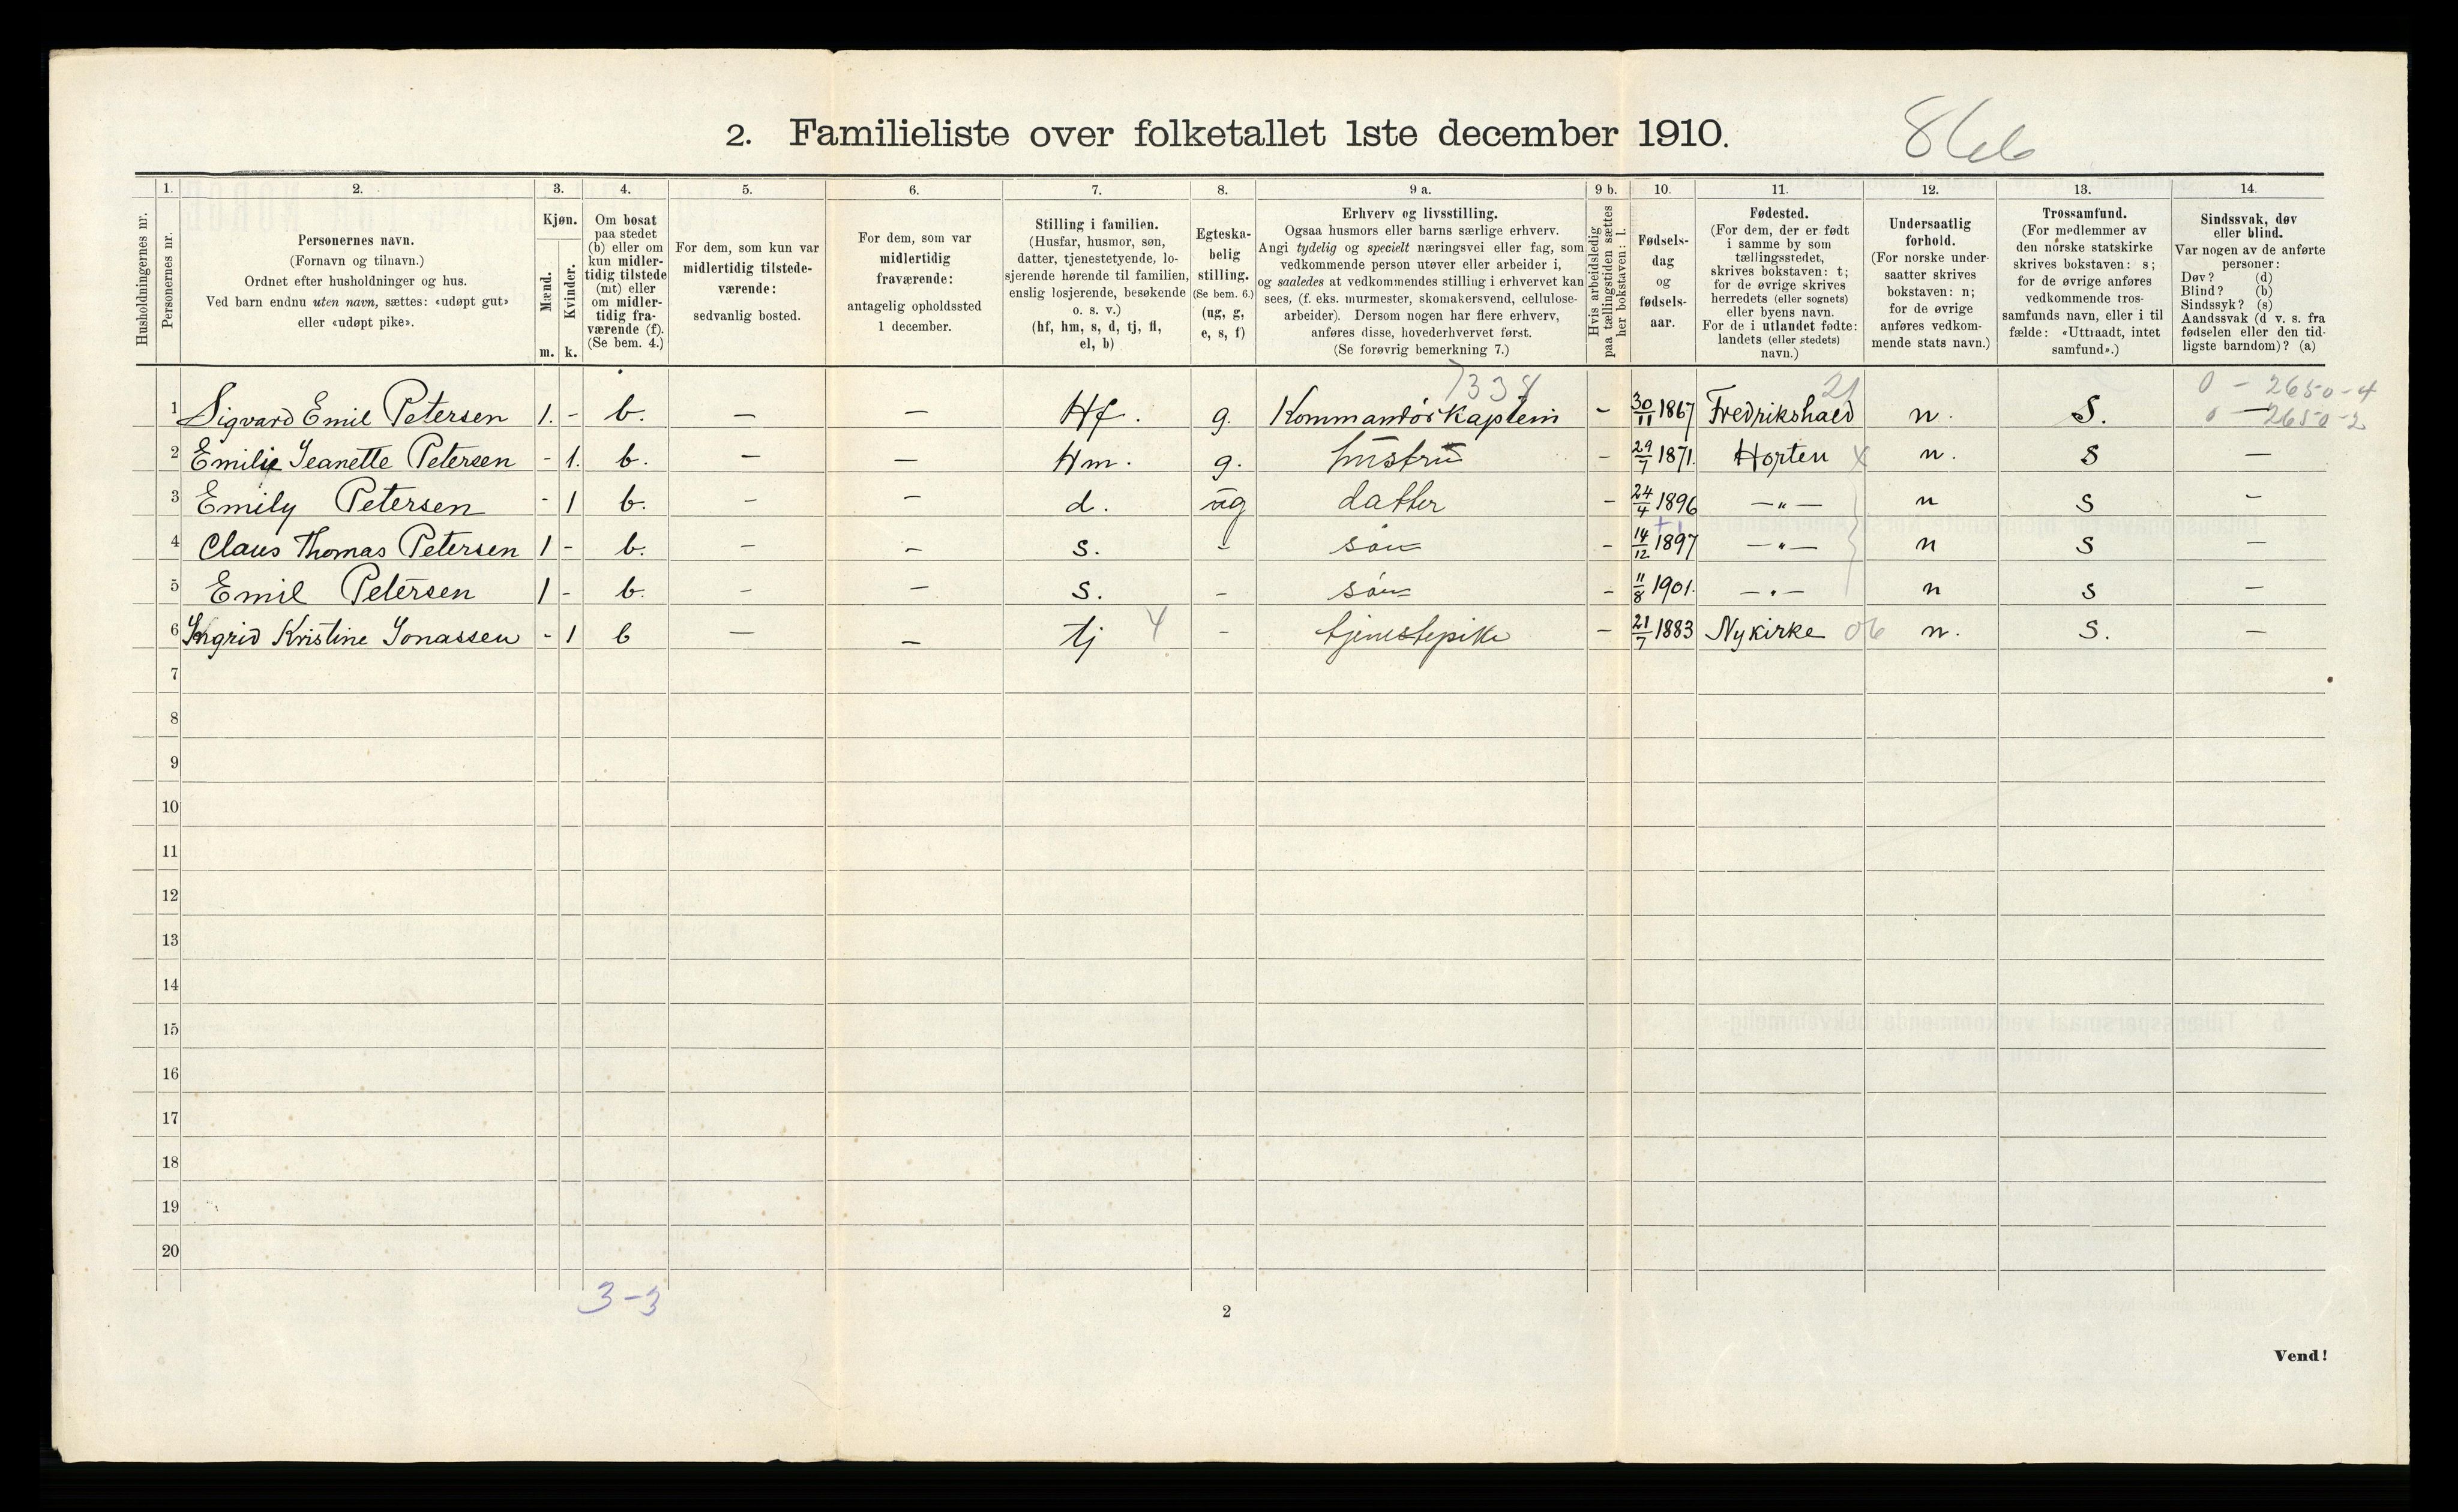 2. Familieliste over folketallet 1ste december 1910.
Husholdningernes nr.
1.
Personernes nr.
2.
Personernes navn.
(Fornavn og tilnavn.)
Ordnet efter husholdninger og hus.
Ved barn endnu uten navn, sættes: «udøpt gut»
eller «udøpt pike».
3.
Kjøn.
Mænd.
Kvinder.
m. k.
4.
Om bosat
paa stedet
(b) eller om
kun midler-
tidig tilstede
(mt) eller
om midler-
tidig fra-
værende (f).
(Se bem. 4.)
5.
For dem, som kun var
midlertidig tilstede-
værende:
sedvanlig bosted.
6.
For dem, som var
midlertidig
fraværende:
antagelig opholdssted
1 december.
7.
Stilling i familien.
(Husfar, husmor, søn,
datter, tjenestetyende, lo-
sjerende hørende til familien,
enslig losjerende, besøkende
o. s. v.)
(hf, hm, s, d, tj, fl,
el, b)
8.
Egteska-
belig
stilling.
(Se bem. 6.)
(ug, g,
e, s, f)
9 a.
Erhverv og livsstilling.
Ogsaa husmors eller barns særlige erhverv.
Angi tydelig og specielt næringsvei eller fag, som
vedkommende person utøver eller arbeider i,
og saaledes at vedkommendes stilling i erhvervet kan
sees, (f. eks. murmester, skomakersvend, cellulose-
arbeider). Dersom nogen har flere erhverv,
anføres disse, hovederhvervet først.
(Se forøvrig bemerkning 7.)
9 b.
Hvis arbeidsledig
paa tællingstiden sættes
her bokstaven: l.
10.
Fødsels-
dag
og
fødsels-
aar.
11.
Fødested.
(For dem, der er født
i samme by som
tællingsstedet,
skrives bokstaven: t;
for de øvrige skrives
herredets (eller sognets)
eller byens navn.
For de i utlandet fødte:
landets (eller stedets)
navn.)
12.
Undersaatlig
forhold.
(For norske under-
saatter skrives
bokstaven: n;
for de øvrige
anføres vedkom-
mende stats navn.)
13.
Trossamfund.
(For medlemmer av
den norske statskirke
skrives bokstaven: s;
for de øvrige anføres
vedkommende tros-
samfunds navn, eller i til
fælde: «Uttraadt, intet
samfund».)
14.
Sindssvak, døv
eller blind.
Var nogen av de anførte
personer:
Døv? (d)
Blind? (b)
Sindssyk? (s)
Aandssvak (d v. s. fra
fødselen eller den tid-
ligste barndom)? (a)
7338 21 0 - 2650-4
1 Sigvard Emil Petersen 1. - b. — — Hf. g. Kommandörkaptein - 30/11 1867 Fredrikshald n. S. — 0 - 2650-2
2 Emilie Jeanette Petersen - 1. b. — — Hm. g. hustru - 29/7 1871. Horten x n. S —
3 Emily Petersen - 1 b. - — d. ug datter - 24/4 1896 —"— n S -
4 Claus Thomas Petersen 1 - b. - - s. - sön - 14/12 1897 —"— n S —
5 Emil Petersen 1 - b. - — s. - sön - 11/8 1901. —"— n S —
6 Ingrid Kristine Jonassen - 1 b — — tj 4 - tjenestepike - 21/7 1883 Nykirke 06 n. S. —
7
8
9
10
11
12
13
14
15
16
17
18
19
20
3-3
2
Vend!